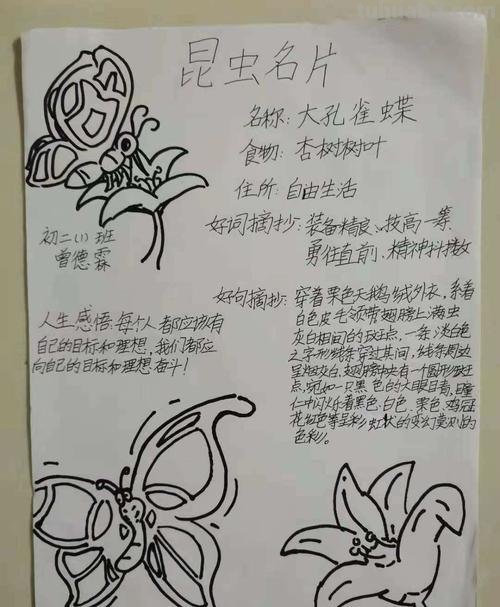 昆虫名片
名称:大孔雀蝶
食物:杏树树叶
住所:自由生活
好词摘抄:装备精良、技高一等
勇往直前、精神抖擞
初二(1)班
曾德霖
好句摘抄:穿着栗色天鹅绒外衣,系着
白色皮毛领带翅膀上满
灰白相间的斑点,一条淡白色
之字形线条穿过其间,线条周边
呈烟灰白。翅膀中央有一个圆形斑
点,宛如一只黑色的大眼睛,瞳
仁中闪烁着黑色、白色、栗色、鸡冠
花红色等呈彩虹状的变幻莫测的
色彩。
人生感悟:每个人都应该有
自己的目标和理想,我们都应
向自己的目标和理想奋斗!